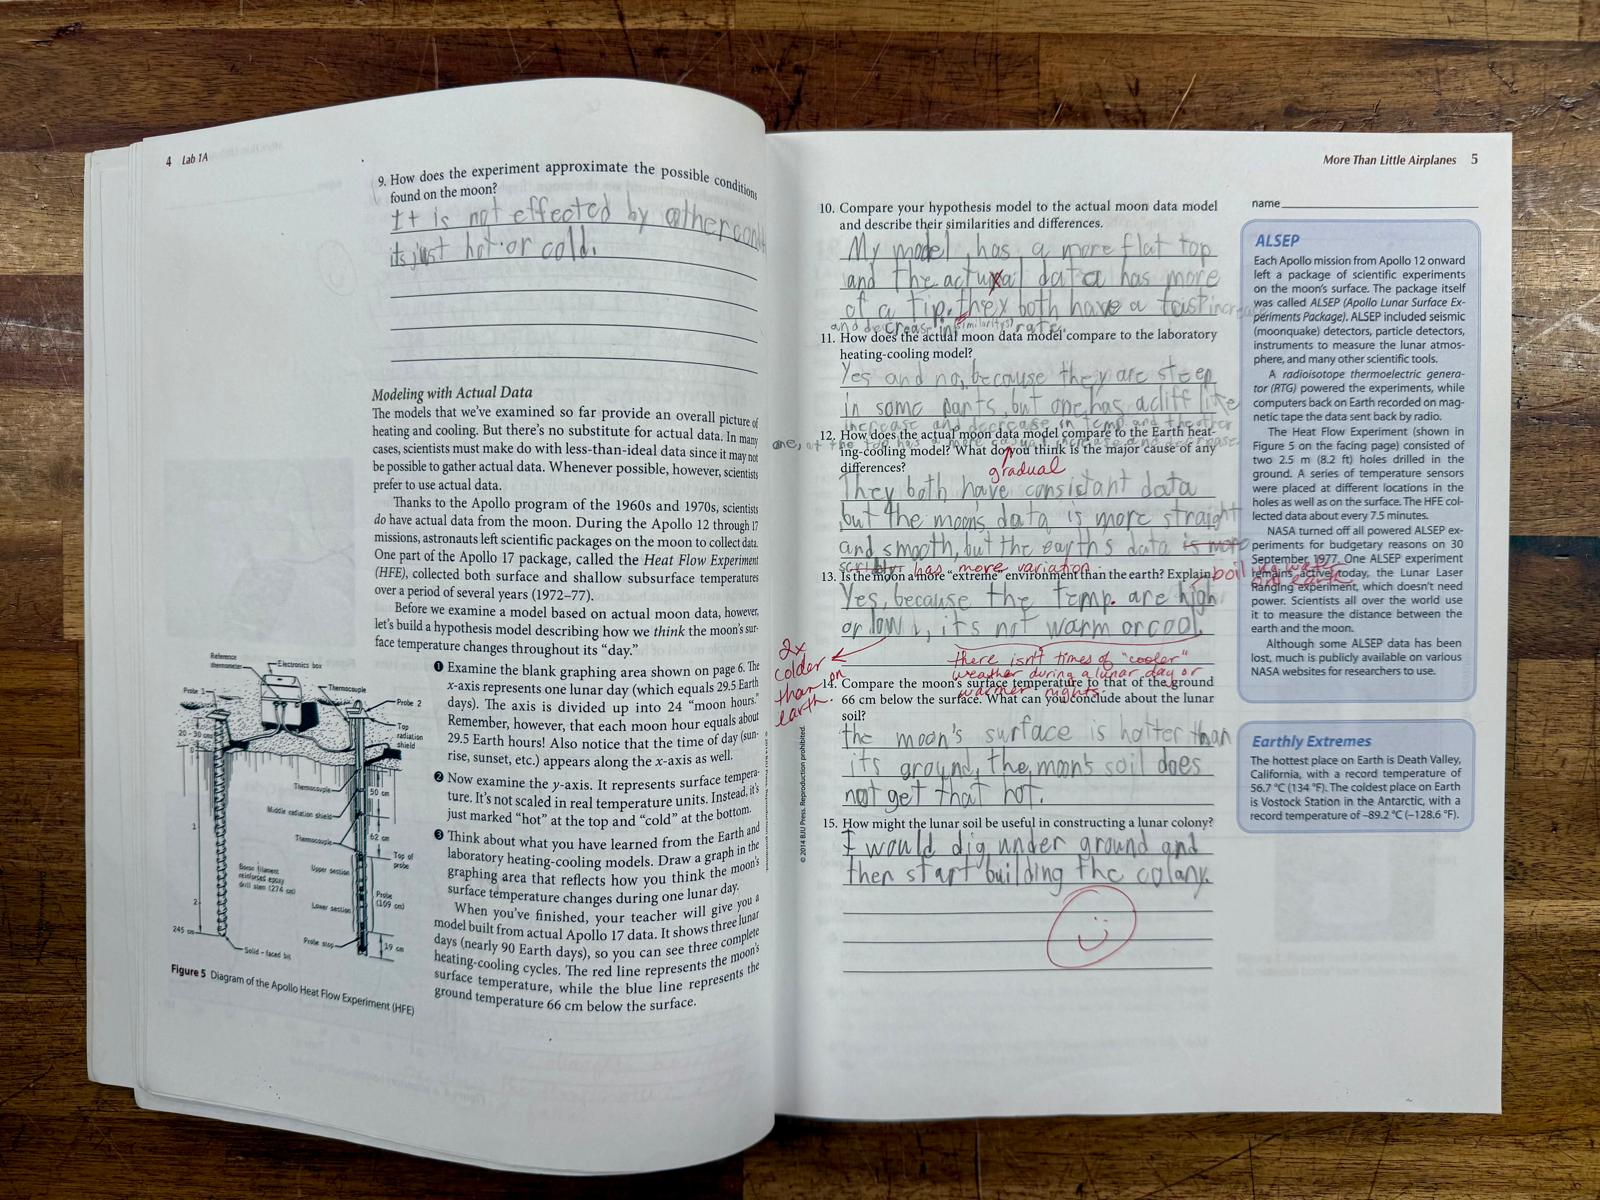 4 Lab 1A
9. How does the experiment approximate the possible conditions
found on the moon?
It is not effected by other
its just hot or cold.
Modeling with Actual Data
The models that we've examined so far provide an overall picture of
heating and cooling. But there's no substitute for actual data. In many
cases, scientists must make do with less-than-ideal data since it may not
be possible to gather actual data. Whenever possible, however, scientists
prefer to use actual data.
Thanks to the Apollo program of the 1960s and 1970s, scientists
do have actual data from the moon. During the Apollo 12 through 17
missions, astronauts left scientific packages on the moon to collect data.
One part of the Apollo 17 package, called the Heat Flow Experiment
(HFE), collected both surface and shallow subsurface temperatures
over a period of several years (1972–77).
Before we examine a model based on actual moon data, however,
let's build a hypothesis model describing how we think the moon's sur-
face temperature changes throughout its "day."
1 Examine the blank graphing area shown on page 6. The
x-axis represents one lunar day (which equals 29.5 Earth
days). The axis is divided up into 24 "moon hours."
Remember, however, that each moon hour equals about
29.5 Earth hours! Also notice that the time of day (sun-
rise, sunset, etc.) appears along the x-axis as well.
2 Now examine the y-axis. It represents surface tempera-
ture. It's not scaled in real temperature units. Instead, it's
just marked "hot" at the top and "cold" at the bottom.
3 Think about what you have learned from the Earth and
laboratory heating-cooling models. Draw a graph in the
graphing area that reflects how you think the moon's
surface temperature changes during one lunar day.
When you've finished, your teacher will give you a
model built from actual Apollo 17 data. It shows three lunar
days (nearly 90 Earth days), so you can see three complete
heating-cooling cycles. The red line represents the moon's
surface temperature, while the blue line represents the
ground temperature 66 cm below the surface.
Reference
thermometer
Electronics box
Probe 1
Thermocouple
Probe 2
Top
radiation
shield
20 - 30 cm
0
Thermocouple
50 cm
Middle radiation shield
1
Thermocouple
62 cm
Top of
probe
Boron filament
reinforced epoxy
drill stem (274 cm)
Upper section
Probe
(109 cm)
Lower section
2
245 cm
Probe stop
19 cm
Solid - faced bit
Figure 5 Diagram of the Apollo Heat Flow Experiment (HFE)
© 2014 BJU Press. Reproduction prohibited.
More Than Little Airplanes 5
name
10. Compare your hypothesis model to the actual moon data model
and describe their similarities and differences.
My model has a more flat top
and the actual data has more
of a tip. they both have a fast increase
and decrease in (similarity) rate.
11. How does the actual moon data model compare to the laboratory
heating-cooling model?
Yes and no, because they are steep
in some parts, but one has a cliff like
increase and decrease in temp and the other
one, at the top has a more casual increase and decrease.
gradual
12. How does the actual moon data model compare to the Earth heat-
ing-cooling model? What do you think is the major cause of any
differences?
They both have consistant data
but the moon's data is more straight
and smooth, but the earth's data is more
has more variation
13. Is the moon a more "extreme" environment than the earth? Explain.
boiling water
on earth
Yes, because the temp. are high
or low, it's not warm or cool.
2x
colder
than on
earth.
there isn't times of "cooler"
weather during a lunar day or
warmer nights.
14. Compare the moon's surface temperature to that of the ground
66 cm below the surface. What can you conclude about the lunar
soil?
the moon's surface is hotter than
its ground, the moon's soil does
not get that hot.
15. How might the lunar soil be useful in constructing a lunar colony?
I would dig under ground and
then start building the colany.
ALSEP
Each Apollo mission from Apollo 12 onward
left a package of scientific experiments
on the moon's surface. The package itself
was called ALSEP (Apollo Lunar Surface Ex-
periments Package). ALSEP included seismic
(moonquake) detectors, particle detectors,
instruments to measure the lunar atmos-
phere, and many other scientific tools.
A radioisotope thermoelectric genera-
tor (RTG) powered the experiments, while
computers back on Earth recorded on mag-
netic tape the data sent back by radio.
The Heat Flow Experiment (shown in
Figure 5 on the facing page) consisted of
two 2.5 m (8.2 ft) holes drilled in the
ground. A series of temperature sensors
were placed at different locations in the
holes as well as on the surface. The HFE col-
lected data about every 7.5 minutes.
NASA turned off all powered ALSEP ex-
periments for budgetary reasons on 30
September 1977. One ALSEP experiment
remains active today, the Lunar Laser
Ranging experiment, which doesn't need
power. Scientists all over the world use
it to measure the distance between the
earth and the moon.
Although some ALSEP data has been
lost, much is publicly available on various
NASA websites for researchers to use.
Earthly Extremes
The hottest place on Earth is Death Valley,
California, with a record temperature of
56.7 °C (134 °F). The coldest place on Earth
is Vostock Station in the Antarctic, with a
record temperature of –89.2 °C (–128.6 °F).
© 2014 BJU Press. Reproduction prohibited.